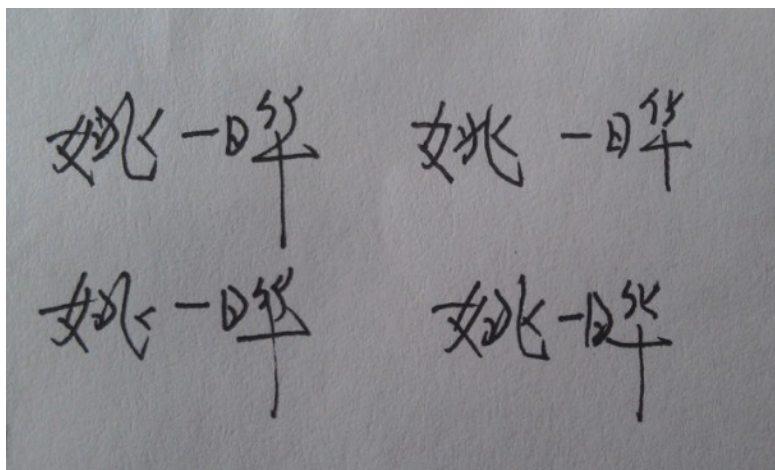 姚一晔 姚一晔
姚一晔 姚一晔